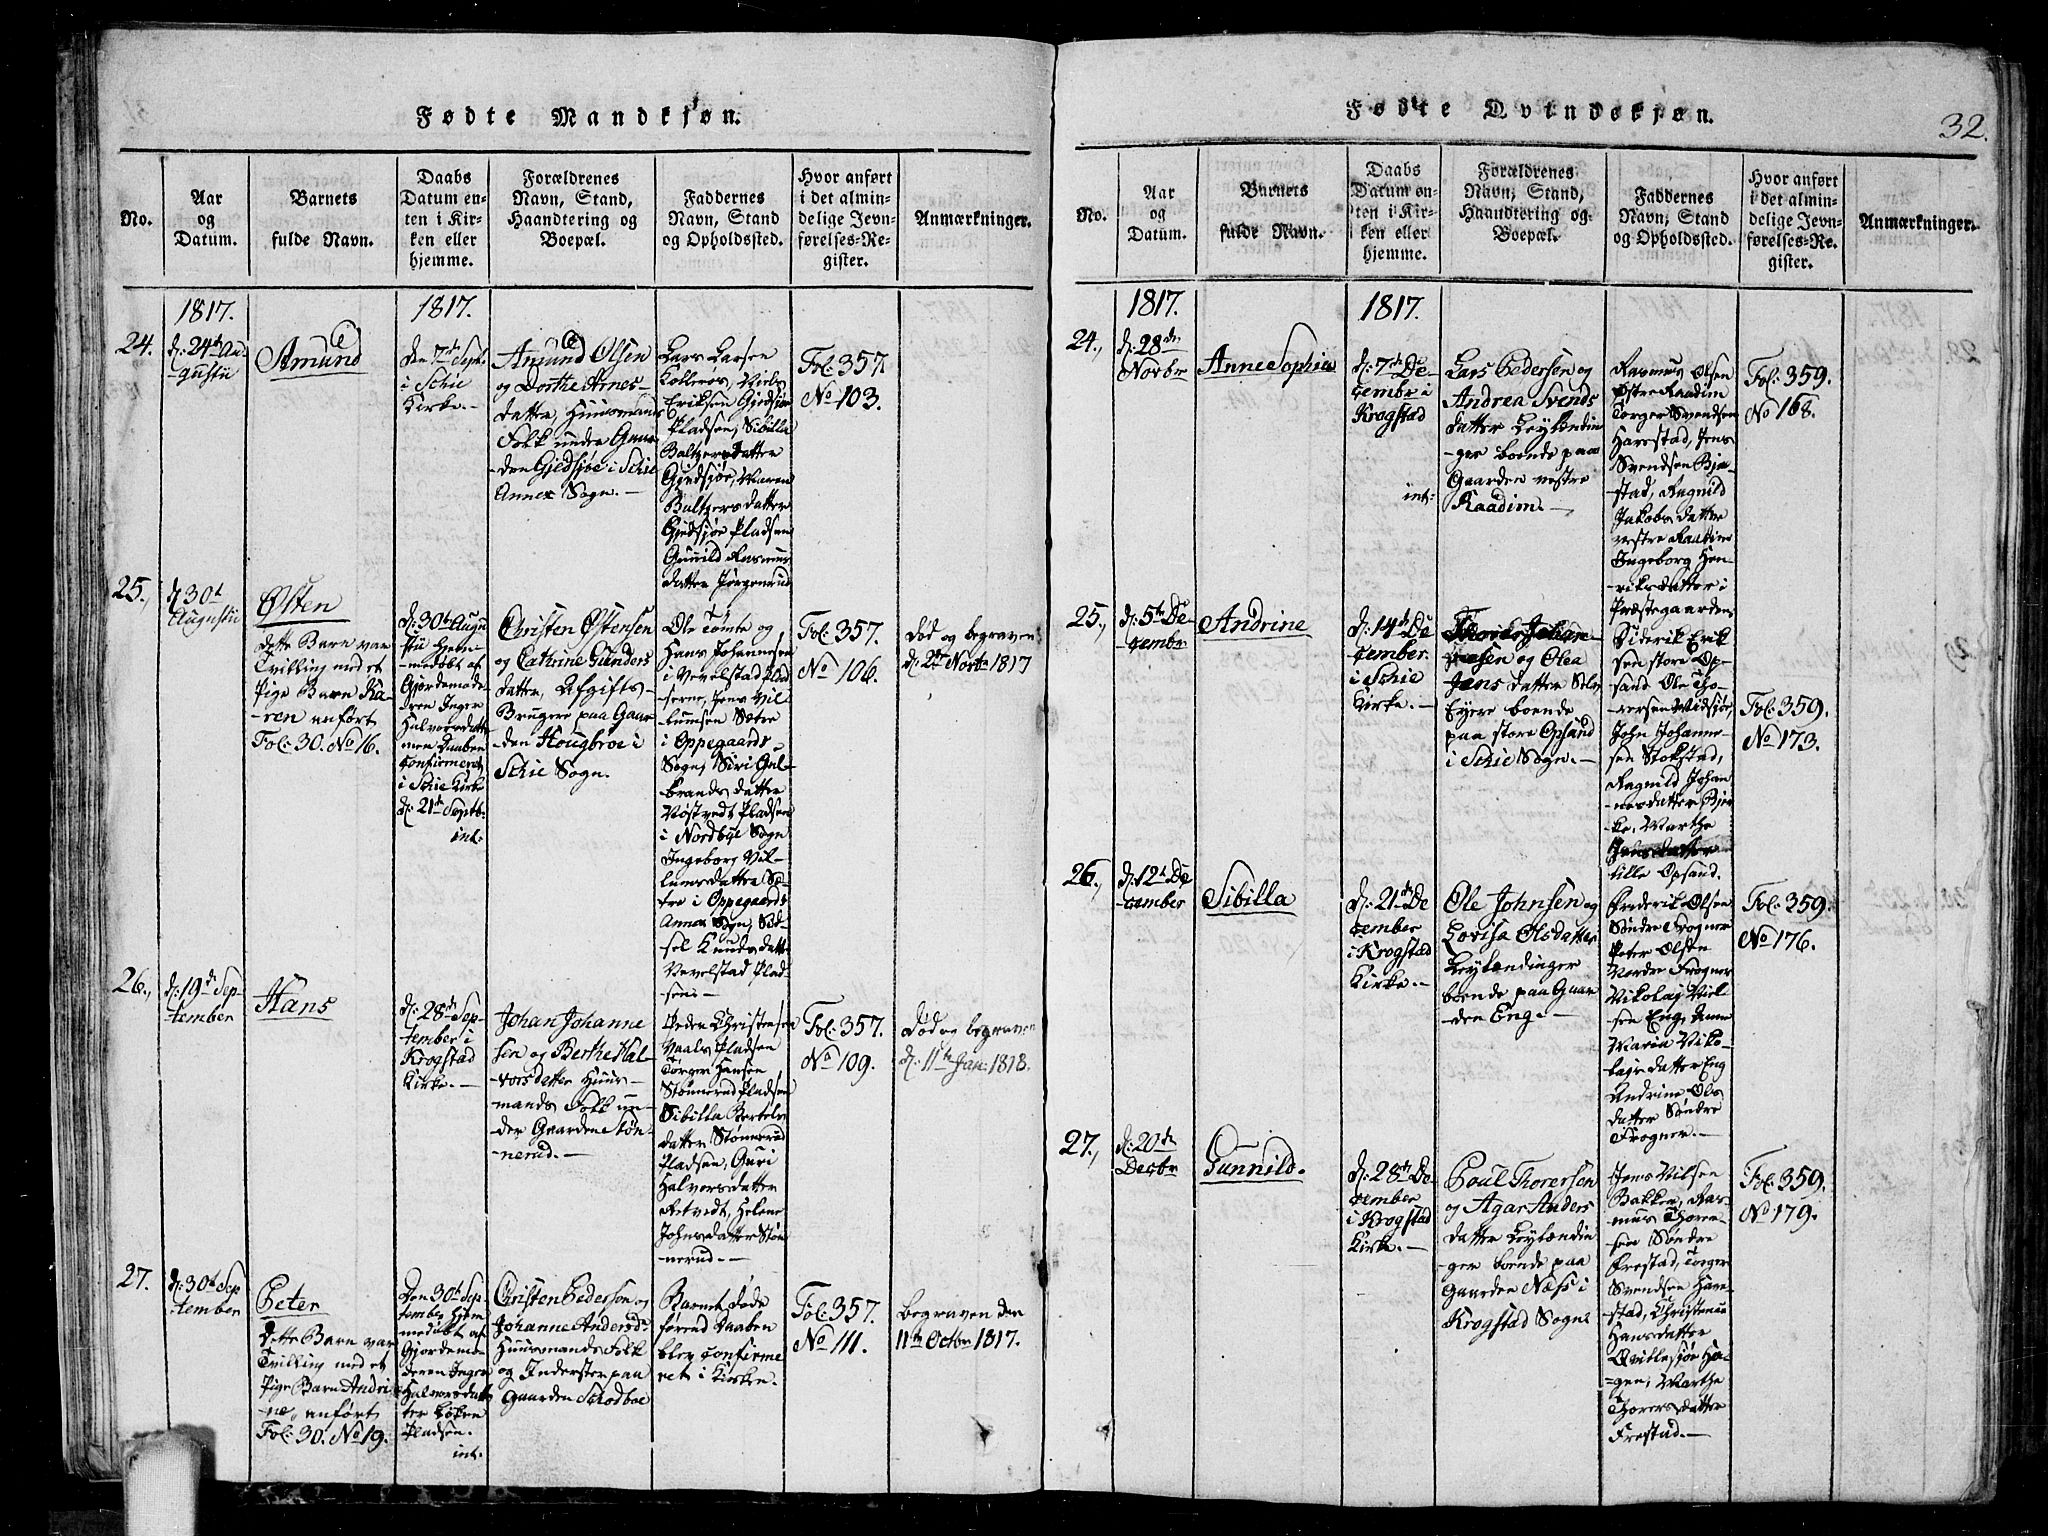 Fødte Mandkjøn.
No.
Aar
og
Datum.
Barnets
fulde Navn.
Daabs
Datum en-
ten i Kir-
ken eller
hjemme.
Forældrenes
Navn, Stand,
Haandtering og
Boepæl.
Faddernes
Navn, Stand
og Opholdssted.
Hvor anført
i det almin-
delige Jevn-
førelses-Re-
gister.
Anmærkninger.
1817.
1817.
24.
d: 24de Au-
gustii
Amund
Den 7de Sept.
i Schie
Kirke.-
Amund Olsen
og Dorthe Arnes-
datter, Huusmands
Folk under Gaar
-den Gjedsjøe i Schie
Annex Sogn.-
Lars Larsen
Kollerøs, Niels
Eriksen Gjedsjøe
Pladsen, Sibilla
Baltzersdatter
Gjedsjøe, Maren
Baltzersdatter
Gjedsjøe Pladsen
Gunild Rasmus
datter Jørgenrud
Fol: 357
No 103.
25.,
d: 30te
Augustii
Østen
dette Barn var
Tvilling med et
Pige Barn Ka-
ren anført
Fol: 30. No 16.
d: 30te Augu
stii Hjem-
medøbt af
Gjordemode-
ren Inger
Halvorsdatter
men Daaben
confirmeret
i Schie Kirke
d: 21de Septb:
int:
Christen Østensen
og Cathrine Gunders
datter, Afgifts-
Brugere paa Gaar
den Hougbroe i
Schie Sogn.
Ole Tømte og
Hans Johannesen
i Vevelstad Plad
serne, Jens Vil
lumsen Sætre
i Oppegaards
Sogn, Siri Gul-
brandsdatter
Nøstvedt Pladsen
i Nordbye Sogn
Ingeborg Vil-
lumsdatter Sæ-
tre i Oppegaards
Annex Sogn, Sid-
sel Knudsdatter
Vevelstad Plad-
sen.-
Fol: 357.
No 106.
Død og begraven
d: 2den Novbr 1817
26.,
d: 19de Sep-
tember
Hans
d: 28de Sep-
tember i
Krogstad
Kirke.-
Johan Johanne
sen og Berthe Hal-
vorsdatter Huus-
mands Folk un-
der Gaarden Støn-
nerud.-
Peder Christensen
Vaals Pladsen
Torger Hansen
Stønnerud Pladsen
Sibilla Bertels
datter Stønnerud
Pladsen, Guri
Halvorsdatter
Retvedt, Helene
Johnsdatter Støn
nerud.-
Fol: 357.
No 109.
Død og begraven
d: 11te Jan: 1818.
27.
d: 30te Sep
tember
Peter
dette Barn var
Tvilling med et
Pige Barn Andri
ne, anført
Fol: 30. No 19.
Den 30te Sep
tember Hjem
medøbt af
Gjordemo-
deren Inger
Halvorsdatt
ter Løken
Pladsen.
int:
Christen Pedersen og
Johanne Andersd:
Huusmands Folk
og Inderster paa
Gaarden Schodboe
Barnet døde
førend Daaben
blev confirme
ret i Kirken.
Fol: 357.
No 111.
begraven den
11te Octbr 1817.
Fødte Qvindekjøn.
32.
No.
Aar
og
Datum.
Barnets
fulde Navn.
Daabs
Datum en-
ten i Kir-
ken eller
hjemme.
Forældrenes
Navn, Stand,
Haandtering og
Boepæl.
Faddernes
Navn, Stand
og Opholdssted.
Hvor anført
i det almin-
delige Jevn-
førelses-Re-
gister.
Anmærkninger.
1817.
1817.
24.,
d: 28de
Novbr
Anne Sophia
d: 7de De-
cember i
Krogstad
int:
Lars Pedersen og
Andrea Svends
datter Leylændin
-ger boende paa
Gaarden vestre
Raadim.-
Rasmus Olsen
Østre Raadim
Torger Svendsen
Harestad, Jens
Svendsen Bja-
stad, Ragnild
Jakobsdatter
vestre Raadim
Ingeborg Hen-
riksdatter i
Præstegaarden
Fol: 359.
No 168.
25.,
d: 5te De
cember
Andrine
d: 14de De
cember.
i Schie
Kirke.-
sen og Olea
Jensdatter Selv
Eyere boende
paa store Opsand
i Schie Sogn.-
Diderik Erik
sen store Op-
sand Ole Tho-
rersen Midsjøe,
John Johanne-
sen Stokstad,
Ragnild Johan
nesdatter Bjer
ke, Marthe
lille Opsand.
Fol: 359.
No 173.
26.,
d: 12te De
cember
Sibilla
d: 21de De
cember
i Krogstad
Kirke.-
Ole Johnsen og
Lovisa Olsdatter
Leylændinger
boende paa Gaar
den Eng.-
Frederik Olsen
Søndre Frogner
Peter Olsen
Nordre Frogner
Nikolaj Niel
sen Eng, Anne
Maria Niko-
lajsdatter Eng
Andrine Ols
datter Søndre
Frogner.-
Fol: 359.
No 176.
27.,
d: 20de
Decbr
Gunnild.
d: 28de De-
cember
i Krogstad
Kirke.-
Poul Thorersen
og Agar Anders
datter Leylændin
ger boende paa
Gaarden Næss i
Krogstad Sogn
Jens Nilsen
Bakken, Ras-
mus Thorer-
sen Søndre
Frestad, Torger
Svendsen Hare-
stad, Christenia
Hansdatter
Qvitlesjøe Ha-
gen, Marthe
Thorersdatter
Frestad.-
Fol: 359.
No 179.